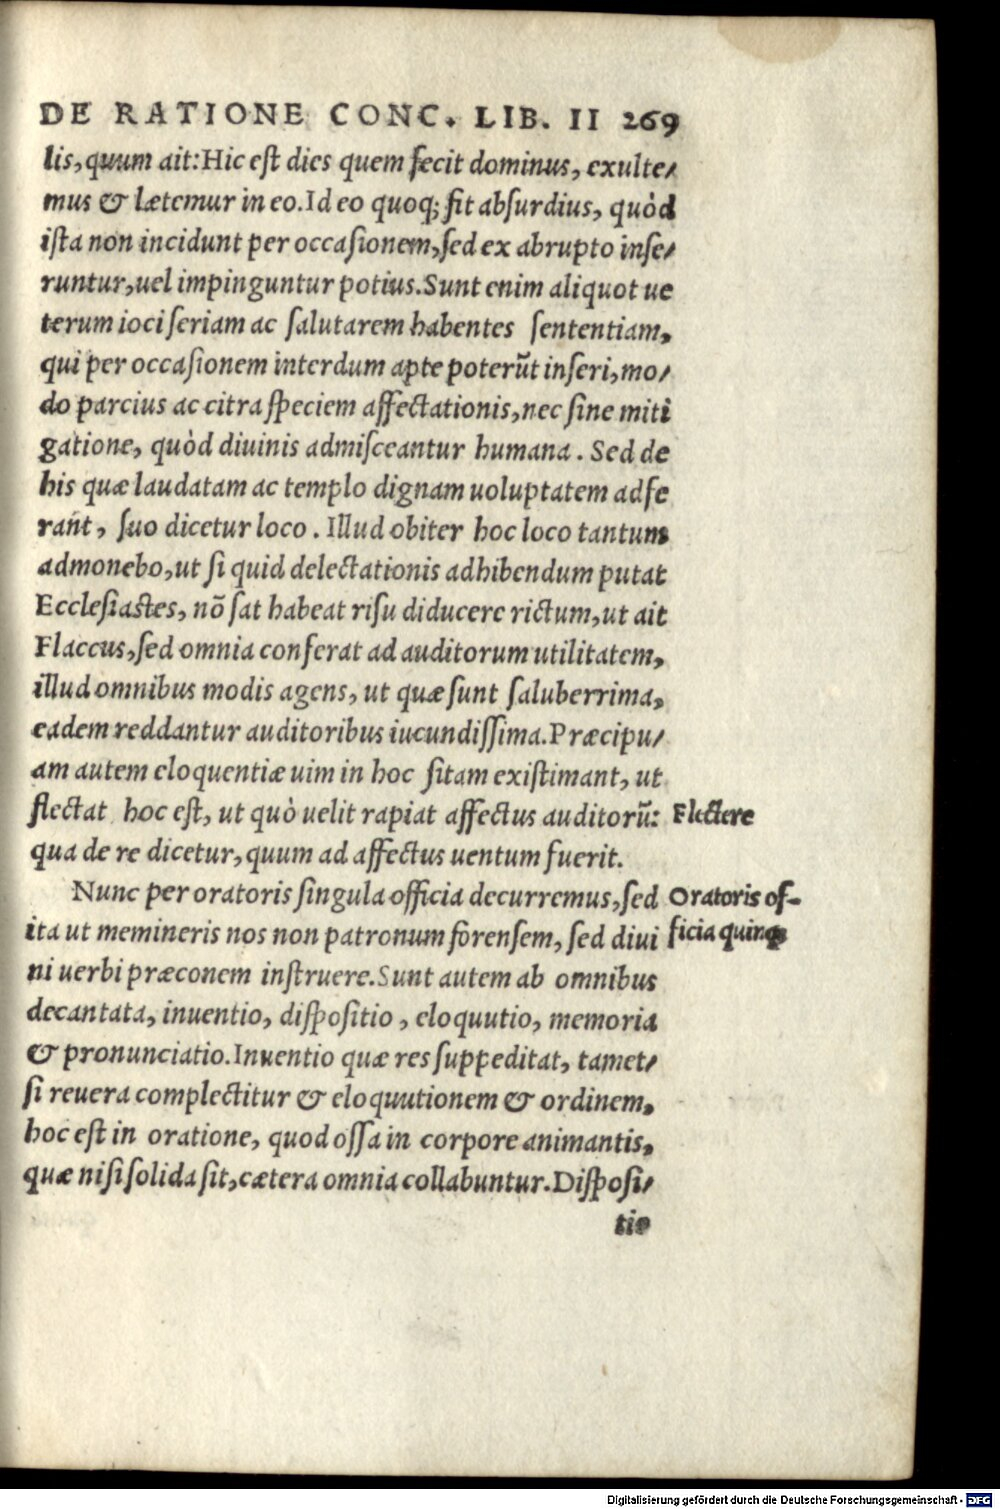 DE RATIONE CONC. LIB. II 269
lis, quum ait: Hic est dies quem fecit dominus, exulte/
mus & lætemur in eo. Id eo quoq; fit absurdius, quòd
ista non incidunt per occasionem, sed ex abrupto inse/
runtur, uel impinguntur potius. Sunt enim aliquot ue
terum ioci seriam ac salutarem habentes sententiam,
qui per occasionem interdum apte poterũt inseri, mo/
do parcius ac citra speciem affectationis, nec sine miti
gatione, quòd diuinis admisceantur humana. Sed de
his quæ laudatam ac templo dignam uoluptatem adfe
rant, suo dicetur loco. Illud obiter hoc loco tantum
admonebo, ut si quid delectationis adhibendum putat
Ecclesiastes, nõ sat habeat risu diducere rictum, ut ait
Flaccus, sed omnia conferat ad auditorum utilitatem,
illud omnibus modis agens, ut quæ sunt saluberrima,
eadem reddantur auditoribus iucundissima. Præcipu/
am autem eloquentiæ uim in hoc sitam existimant, ut
flectat hoc est, ut quò uelit rapiat affectus auditorũ: Flectere
qua de re dicetur, quum ad affectus uentum fuerit.
Nunc per oratoris singula officia decurremus, sed Oratoris of-
ita ut memineris nos non patronum forensem, sed diui ficia quinq;
ni uerbi præconem instruere. Sunt autem ab omnibus
decantata, inuentio, dispositio, eloquutio, memoria
& pronunciatio. Inuentio quæ res suppeditat, tamet/
si reuera complectitur & eloquutionem & ordinem,
hoc est in oratione, quod ossa in corpore animantis,
quæ nisi solida sit, cætera omnia collabuntur. Disposi/
tio
Digitalisierung gefördert durch die Deutsche Forschungsgemeinschaft - DFG